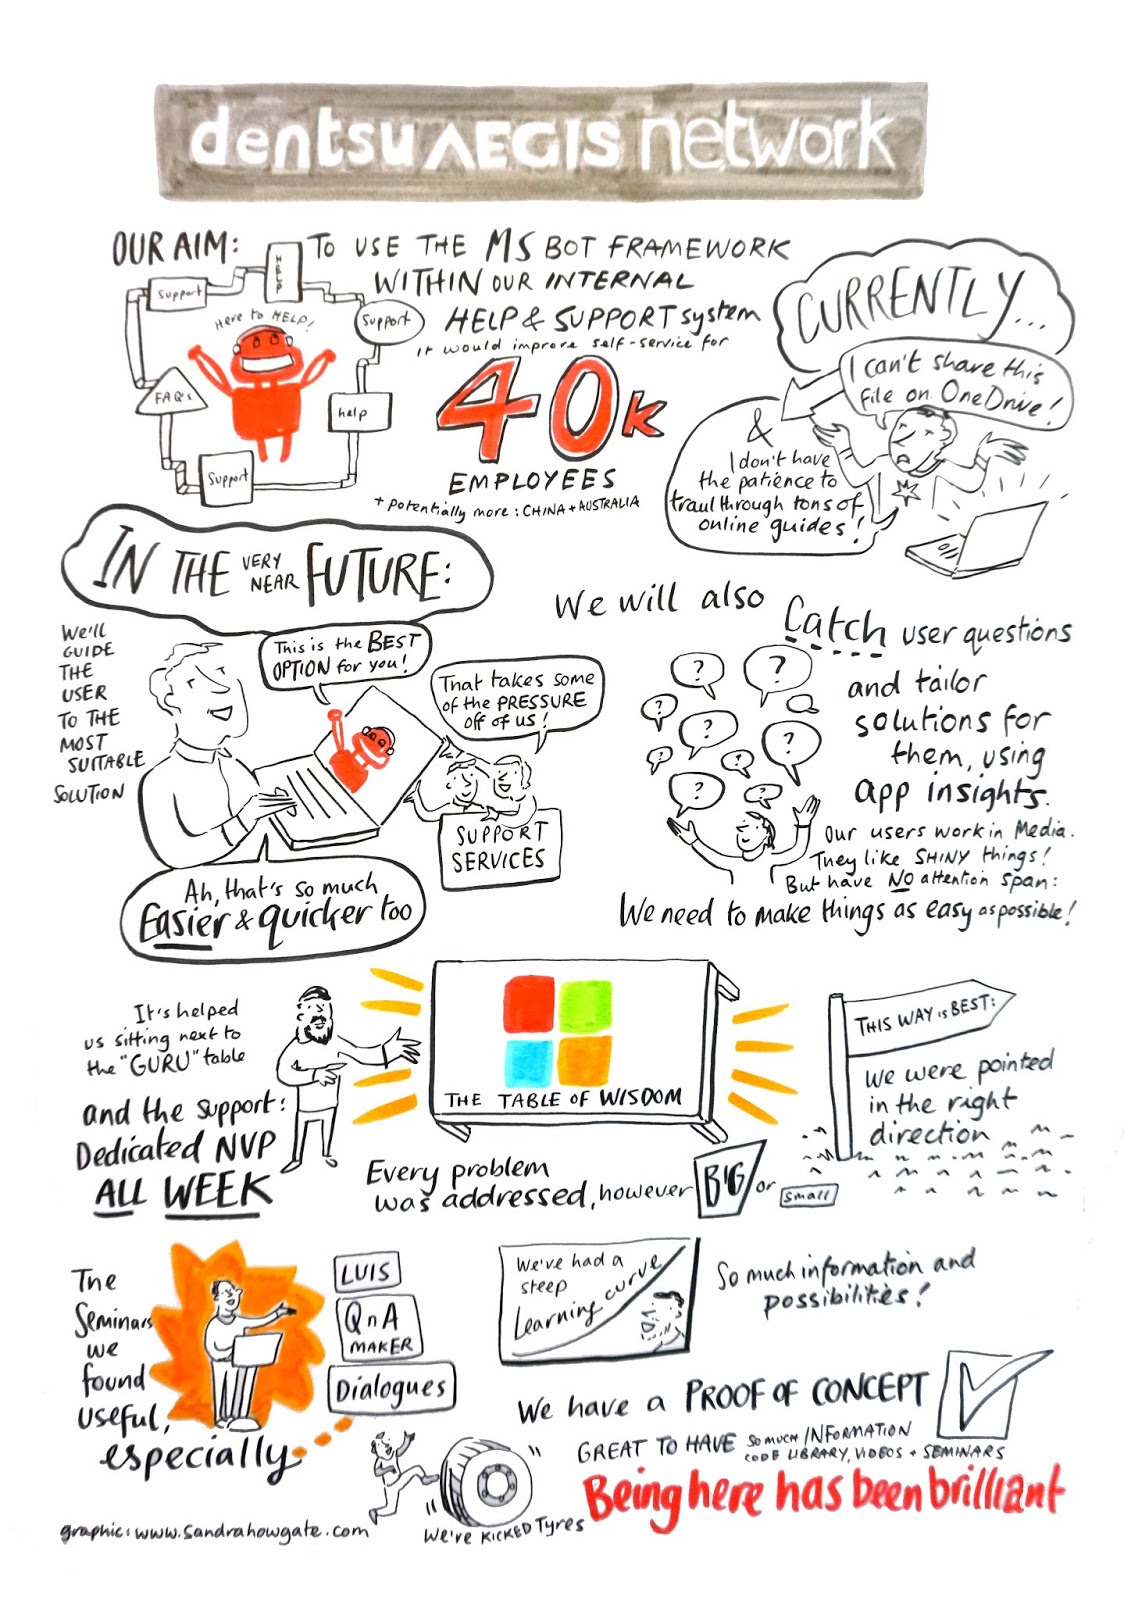 dentsu AEGIS network
OUR AIM:
TO USE THE MS BOT FRAMEWORK
WITHIN OUR INTERNAL
HELP & SUPPORT system
it would improve self-service for
40K
EMPLOYEES
+ potentially more: CHINA + AUSTRALIA
HELP
Support
Here to HELP!
Support
FAQ's
help
Support
CURRENTLY...
I can't share this
file on OneDrive!
&
I don't have
the patience to
traul through tons of
online guides!
IN THE VERY NEAR FUTURE:
We'll
GUIDE
THE
USER
TO THE
MOST
SUITABLE
SOLUTION
This is the BEST
OPTION for you!
That takes some
of the PRESSURE
off of us!
SUPPORT
SERVICES
Ah, that's so much
Easier & quicker too
We will also
Catch user questions
and tailor
solutions for
them, using
app insights.
? ? ? ? ? ? ? ? ?
Our users work in Media.
They like SHINY things!
But have NO attention span:
We need to make things as easy as possible!
It's helped
us sitting next to
the "GURU" table
and the support:
Dedicated NVP
ALL WEEK
THE TABLE OF WISDOM
Every problem
was addressed, however BIG or small
THIS WAY is BEST:
We were pointed
in the right
direction
The
Seminars
we
found
useful,
especially
LUIS
QnA
MAKER
Dialogues
We've had a
steep
Learning curve
So much information and
possibilities!
We have a PROOF OF CONCEPT
GREAT TO HAVE so much INFORMATION
CODE LIBRARY, VIDEOS + SEMINARS
Being here has been brilliant
We've KICKED Tyres
graphic: www.sandrahowgate.com